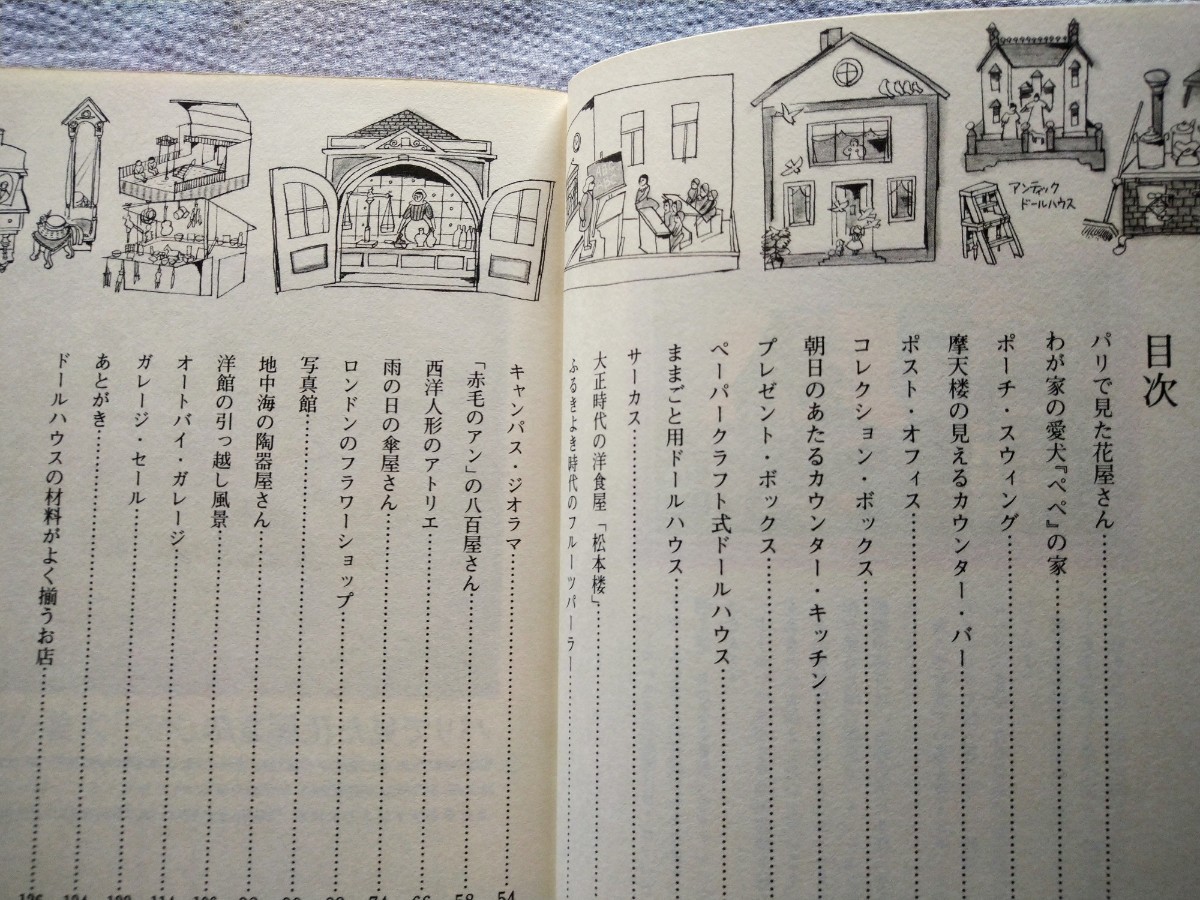 アンティック
ドールハウス
目次
パリで見た花屋さん
わが家の愛犬『ペペ』の家
ポーチ・スウィング
摩天楼の見えるカウンター・バー
ポスト・オフィス
コレクション・ボックス
朝日のあたるカウンター・キッチン
プレゼント・ボックス
ペーパークラフト式ドールハウス
ままごと用ドールハウス
サーカス
大正時代の洋食屋「松本楼」
ふるきよき時代のフルーツパーラー
キャンパス・ジオラマ 54
「赤毛のアン」の八百屋さん 58
西洋人形のアトリエ 66
雨の日の傘屋さん 74
ロンドンのフラワーショップ
写真館
地中海の陶器屋さん
洋館の引っ越し風景
オートバイ・ガレージ
ガレージ・セール
あとがき
ドールハウスの材料がよく揃うお店